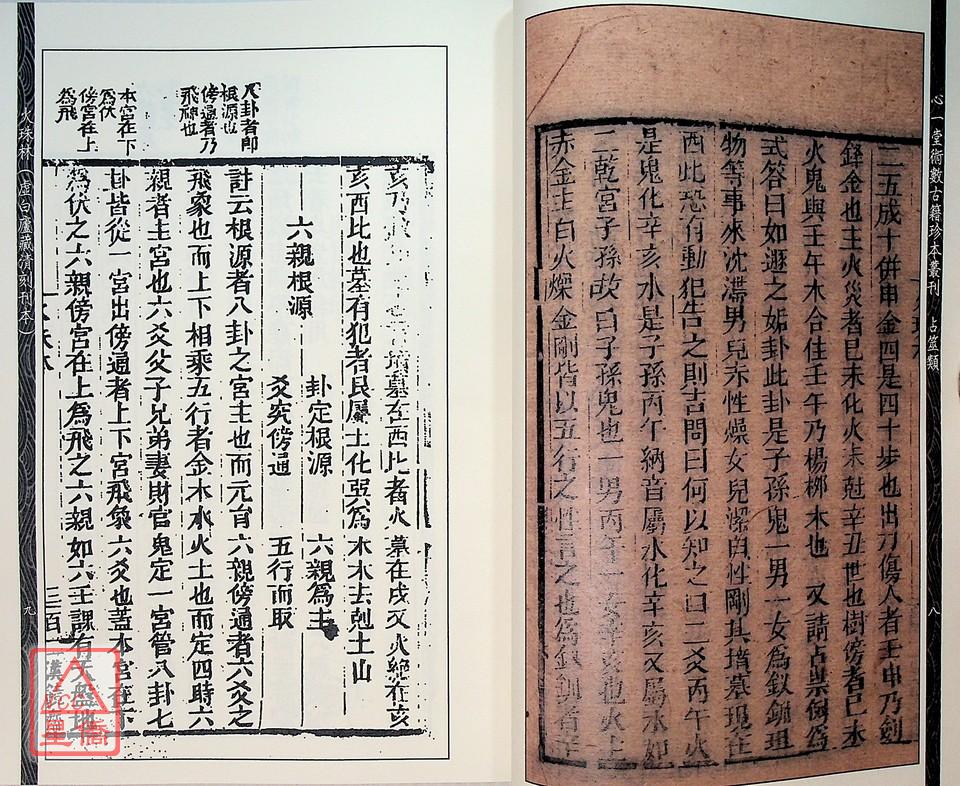 心一堂術數古籍珍本叢刊 占筮類
八
二五成十併申金四是四十步也出刀傷人者壬申乃劍
鋒金也主火災者巳未化火未尅辛丑世也樹傍者巳未
火鬼與壬午木合住壬午乃楊栁木也 又請占祟例爲
式答曰如遯之姤卦此卦是子孫鬼一男一女爲釵釧
物等事來沈滯男兒赤性燥女兒潔白性剛其墳墓現在
西此恐有動犯告之則吉問曰何以知之曰二爻丙午火
是鬼化辛亥水是子孫丙午納音屬水化辛亥又屬水如
二乾宮子孫故曰子孫鬼也一男丙午一女辛亥也火上
赤金主白火燥金剛皆以五行之性言之也爲銀釧者辛
火珠林(虛白廬藏清刻刊本)
九
八卦者即
根源也
傍通者乃
飛神也
本宮在下
爲伏
傍宮在上
爲飛
亥乃 墳墓在西北者火墓在戌又火絶在亥
亥西北也墓有犯者艮屬土化巽爲木木去剋土山
六親根源
卦定根源 六親爲主
爻究傍通 五行而取
註云根源者八卦之宮主也而元有六親傍通者六爻之
飛象也而上下相乘五行者金木水火土也而定四時六
親者主宮也六爻父子兄弟妻財官鬼定一宮管八卦七
卦皆從一宮出傍通者上下宮飛象六爻也蓋本宮在下
爲伏之六親傍宮在上爲飛之六親如六壬課有天盤地
三百